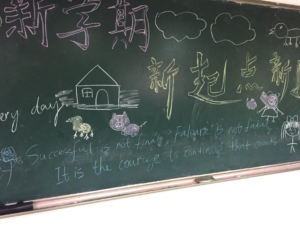 新学期
新起点 新
every day
Successful is not final, Failure is not fatal
It is the courage to continue that counts